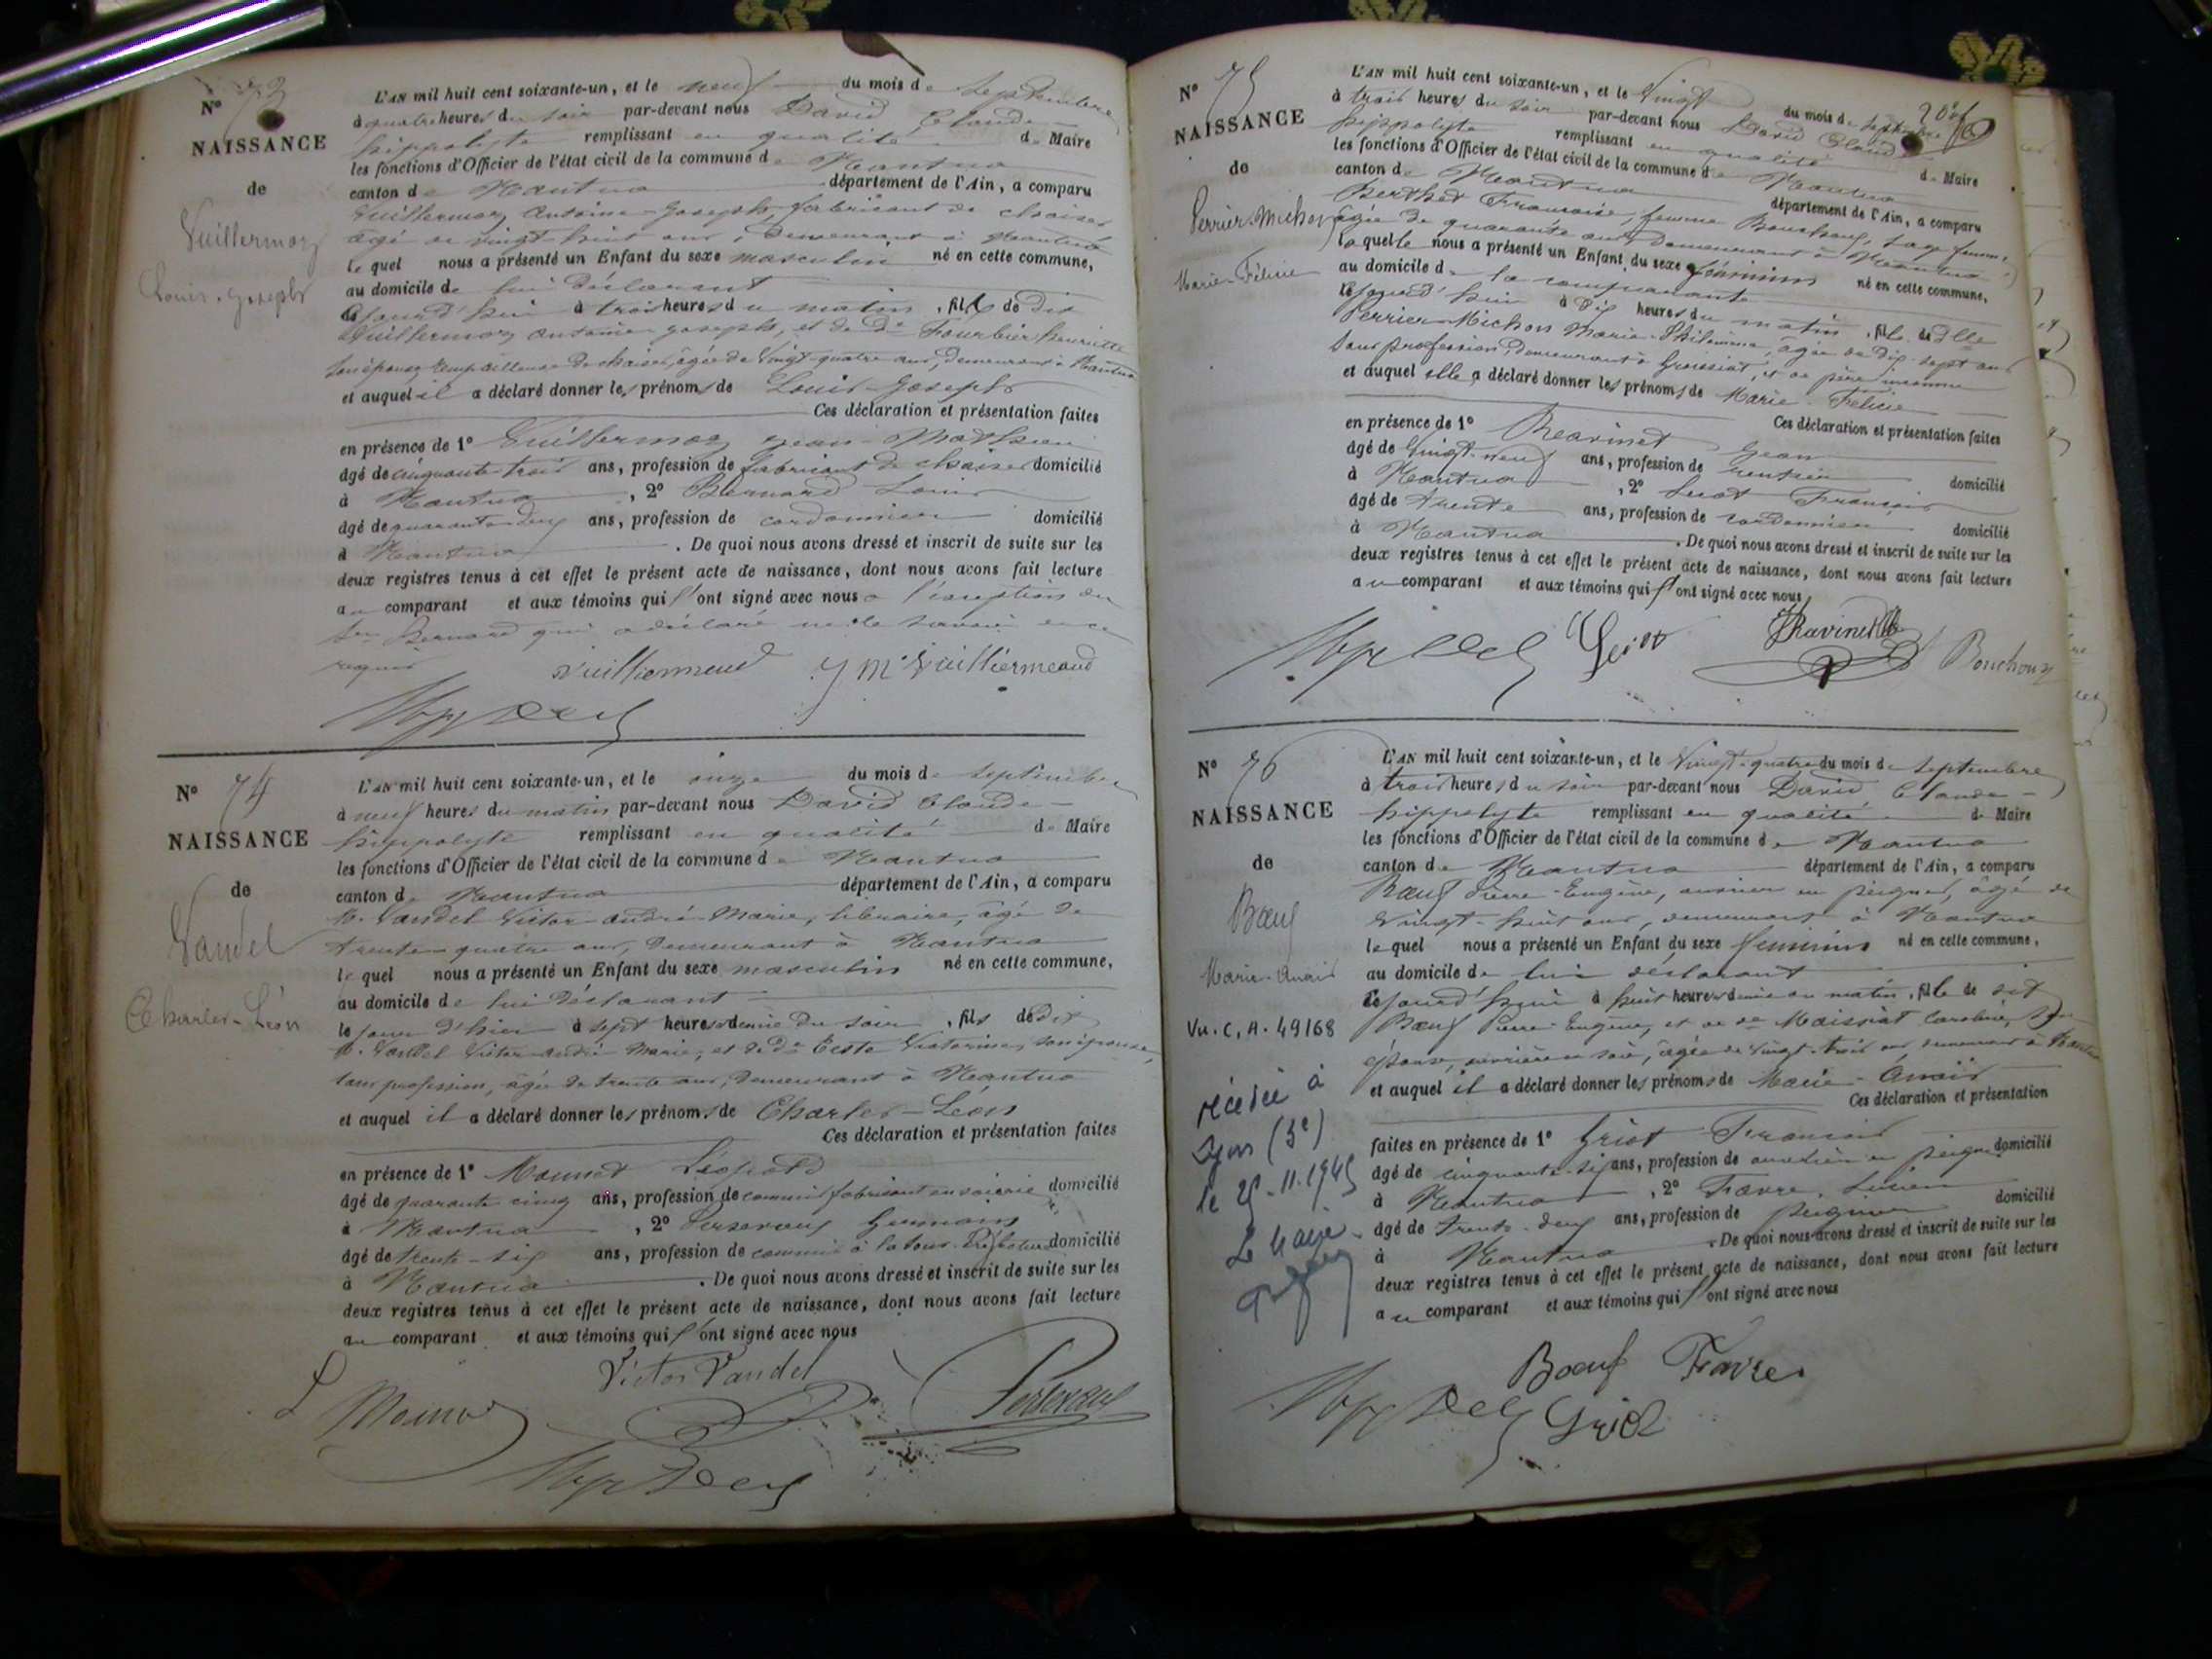 N° 73
NAISSANCE
de
Vuillermoz
Louis-Joseph
L'AN mil huit cent soixante-un, et le neuf du mois de Septembre
à quatre heures du soir par-devant nous David Claude-
hippolyte remplissant en qualité de Maire
les fonctions d'Officier de l'état civil de la commune de Nantua
canton de Nantua département de l'Ain, a comparu
Vuillermoz Antoine-Joseph, fabricant de chaises
âgé de vingt-huit ans, demeurant à Nantua
lequel nous a présenté un Enfant du sexe masculin né en cette commune,
au domicile de lui déclarant
aujourd'hui à trois heures du matin, fils de dit
Vuillermoz antoine joseph, et de De Fourbier henriette
son épouse, rempailleuse de chaises, âgée de vingt-quatre ans, demeurant à Nantua
et auquel il a déclaré donner les prénoms de Louis-Joseph
Ces déclaration et présentation faites
en présence de 1° Vuillermoz jean-Mathieu
âgé de cinquante-trois ans, profession de fabricant de chaises domicilié
à Nantua, 2° Bernard Louis
âgé de quarante-deux ans, profession de cordonnier domicilié
à Nantua. De quoi nous avons dressé et inscrit de suite sur les
deux registres tenus à cet effet le présent acte de naissance, dont nous avons fait lecture
au comparant et aux témoins qui l'ont signé avec nous à l'exception du
sr Bernard qui a déclaré ne le savoir de ce
requis
Vuilliermeaud J M Vuilliermeaud
N° 74
NAISSANCE
de
Vandel
Charles-Léon
L'AN mil huit cent soixante-un, et le onze du mois de septembre
à neuf heures du matin par-devant nous David Claude-
hippolyte remplissant en qualité de Maire
les fonctions d'Officier de l'état civil de la commune de Nantua
canton de Nantua département de l'Ain, a comparu
M. Vandel Victor-andré-Marie, libraire, âgé de
trente-quatre ans, demeurant à Nantua
lequel nous a présenté un Enfant du sexe masculin né en cette commune,
au domicile de lui déclarant
le jour d'hier à sept heures demie du soir, fils de dit
M. Vandel Victor-andré-Marie, et de De Teste Victorine, son épouse,
sans profession, âgée de trente ans, demeurant à Nantua
et auquel il a déclaré donner les prénoms de Charles-Léon
Ces déclaration et présentation faites
en présence de 1° Mounet Léopold
âgé de quarante cinq ans, profession de commis fabricant en soierie domicilié
à Nantua, 2° Perseveaux Germain
âgé de trente-six ans, profession de commis à la sous-Préfecture domicilié
à Nantua. De quoi nous avons dressé et inscrit de suite sur les
deux registres tenus à cet effet le présent acte de naissance, dont nous avons fait lecture
au comparant et aux témoins qui l'ont signé avec nous
Victor Vandel
N° 75
NAISSANCE
de
Perrier-Michon
Marie-Félicie
L'AN mil huit cent soixante-un, et le Vingt du mois de septembre
à trois heures du soir par-devant nous David Claude
hippolyte remplissant en qualité de Maire
les fonctions d'Officier de l'état civil de la commune de Nantua
canton de Nantua département de l'Ain, a comparu
Berthet Françoise, femme Bouchoux, sage femme,
âgée de quarante ans, demeurant à Nantua
laquelle nous a présenté un Enfant du sexe féminin né en cette commune,
au domicile de la comparante
aujourd'hui à dix heures du matin, fille de dlle
Perrier-Michon Marie-Philomine, âgée de dix-sept ans
sans profession, demeurant à Groissiat, et de père inconnu
et auquel elle a déclaré donner les prénoms de Marie-Félicie
Ces déclaration et présentation faites
en présence de 1° Ravinet Jean
âgé de vingt-neuf ans, profession de rentier domicilié
à Nantua, 2° François
âgé de trente ans, profession de cordonnier domicilié
à Nantua. De quoi nous avons dressé et inscrit de suite sur les
deux registres tenus à cet effet le présent acte de naissance, dont nous avons fait lecture
au comparant et aux témoins qui l'ont signé avec nous
Ravinet Bouchoux
N° 76
NAISSANCE
de
Bœuf
Marie-Anaïs
Vu. C. A. 49168
décédée à
Lyon (3e)
le 25-11-1945
Le Maire
L'AN mil huit cent soixante-un, et le Vingt-quatre du mois de septembre
à trois heures du soir par-devant nous David Claude-
hippolyte remplissant en qualité de Maire
les fonctions d'Officier de l'état civil de la commune de Nantua
canton de Nantua département de l'Ain, a comparu
Bœuf Pierre-Eugène, ouvrier en peignes, âgé de
vingt-huit ans, demeurant à Nantua
lequel nous a présenté un Enfant du sexe féminin né en cette commune,
au domicile de lui déclarant
aujourd'hui à huit heures demie du matin, fille de dit
Bœuf Pierre-Eugène, et de de Maissiat Caroline, son
épouse, ouvrière en soie, âgée de vingt-trois ans, demeurant à Nantua
et auquel il a déclaré donner les prénoms de Marie-Anaïs
Ces déclaration et présentation
faites en présence de 1° Griot François
âgé de cinquante-six ans, profession de ouvrier en peignes domicilié
à Nantua, 2° Favre Lucien
âgé de trente-deux ans, profession de peigneur domicilié
à Nantua. De quoi nous avons dressé et inscrit de suite sur les
deux registres tenus à cet effet le présent acte de naissance, dont nous avons fait lecture
au comparant et aux témoins qui l'ont signé avec nous
Bœuf Favre
Griot